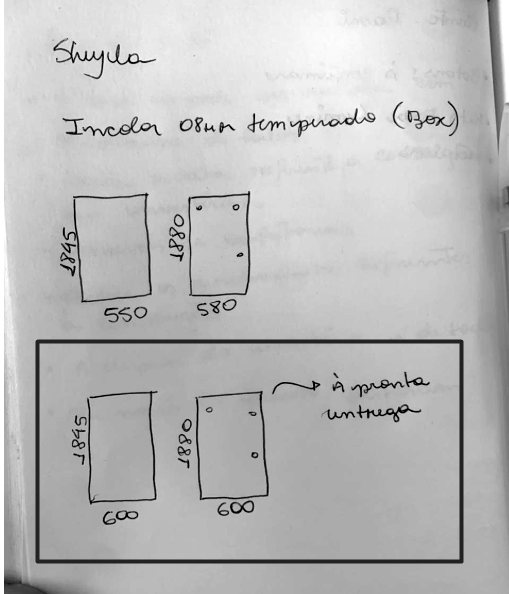 Sheyla
Incolor 08mm temperado (Box)
1845
550
1880
580
À pronta
entrega
1845
600
1880
600